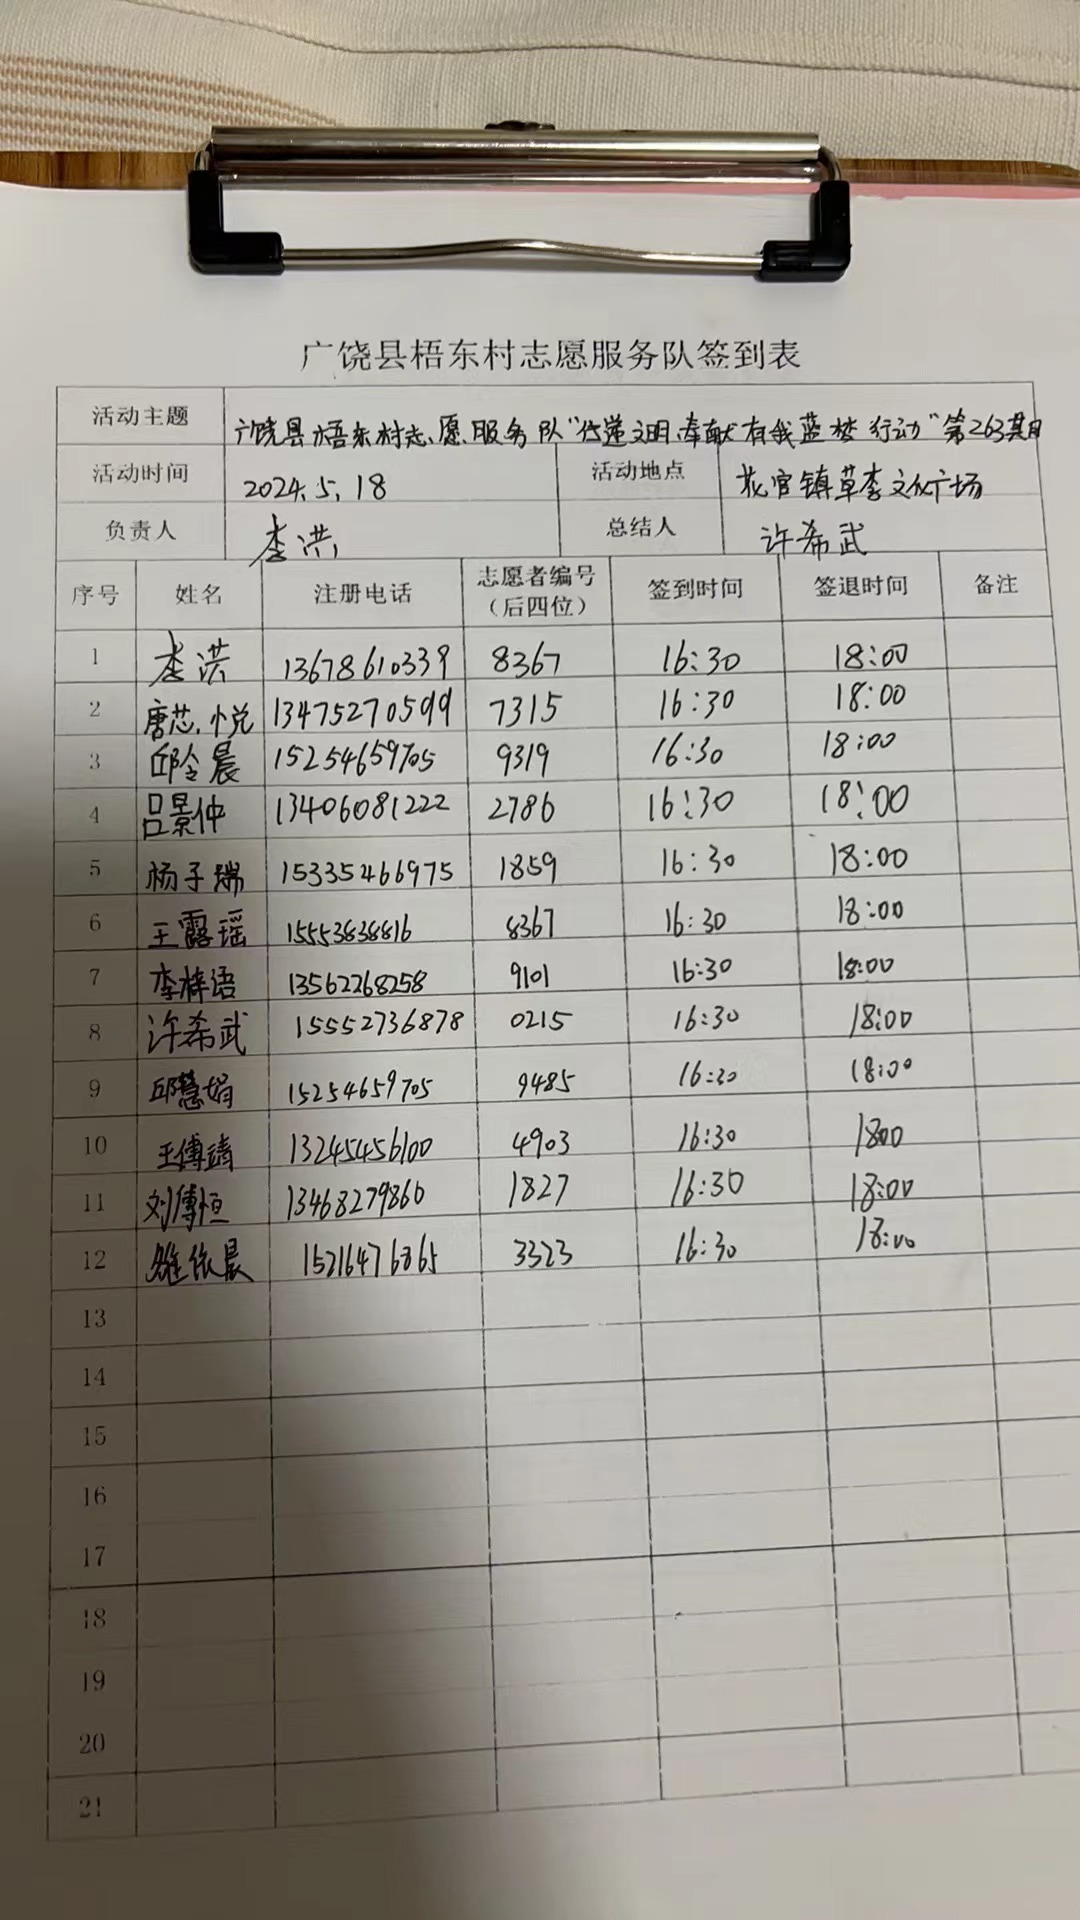 广饶县梧东村志愿服务队签到表
活动主题 广饶县梧东村志愿服务队"传递文明,奉献有我蓝梦行动"第263期
活动时间 2024.5.18 活动地点 花官镇草李文化广场
负责人 李洪 总结人 许希武
序号 姓名 注册电话 志愿者编号（后四位） 签到时间 签退时间 备注
1 李洪 13678610339 8367 16:30 18:00
2 唐芯悦 13475270599 7315 16:30 18:00
3 邱令晨 15254659705 9319 16:30 18:00
4 吕景仲 13406081222 2786 16:30 18:00
5 杨子瑞 15335466975 1859 16:30 18:00
6 王露瑶 15553838816 8367 16:30 18:00
7 李梓语 13562268258 9101 16:30 18:00
8 许希武 15552736878 0215 16:30 18:00
9 邱慧娟 15254659705 9485 16:30 18:00
10 王傅靖 13245456100 4903 16:30 1800
11 刘傅恒 13468279860 1827 16:30 18:00
12 依晨 15216476865 3323 16:30 18:00
13
14
15
16
17
18
19
20
21